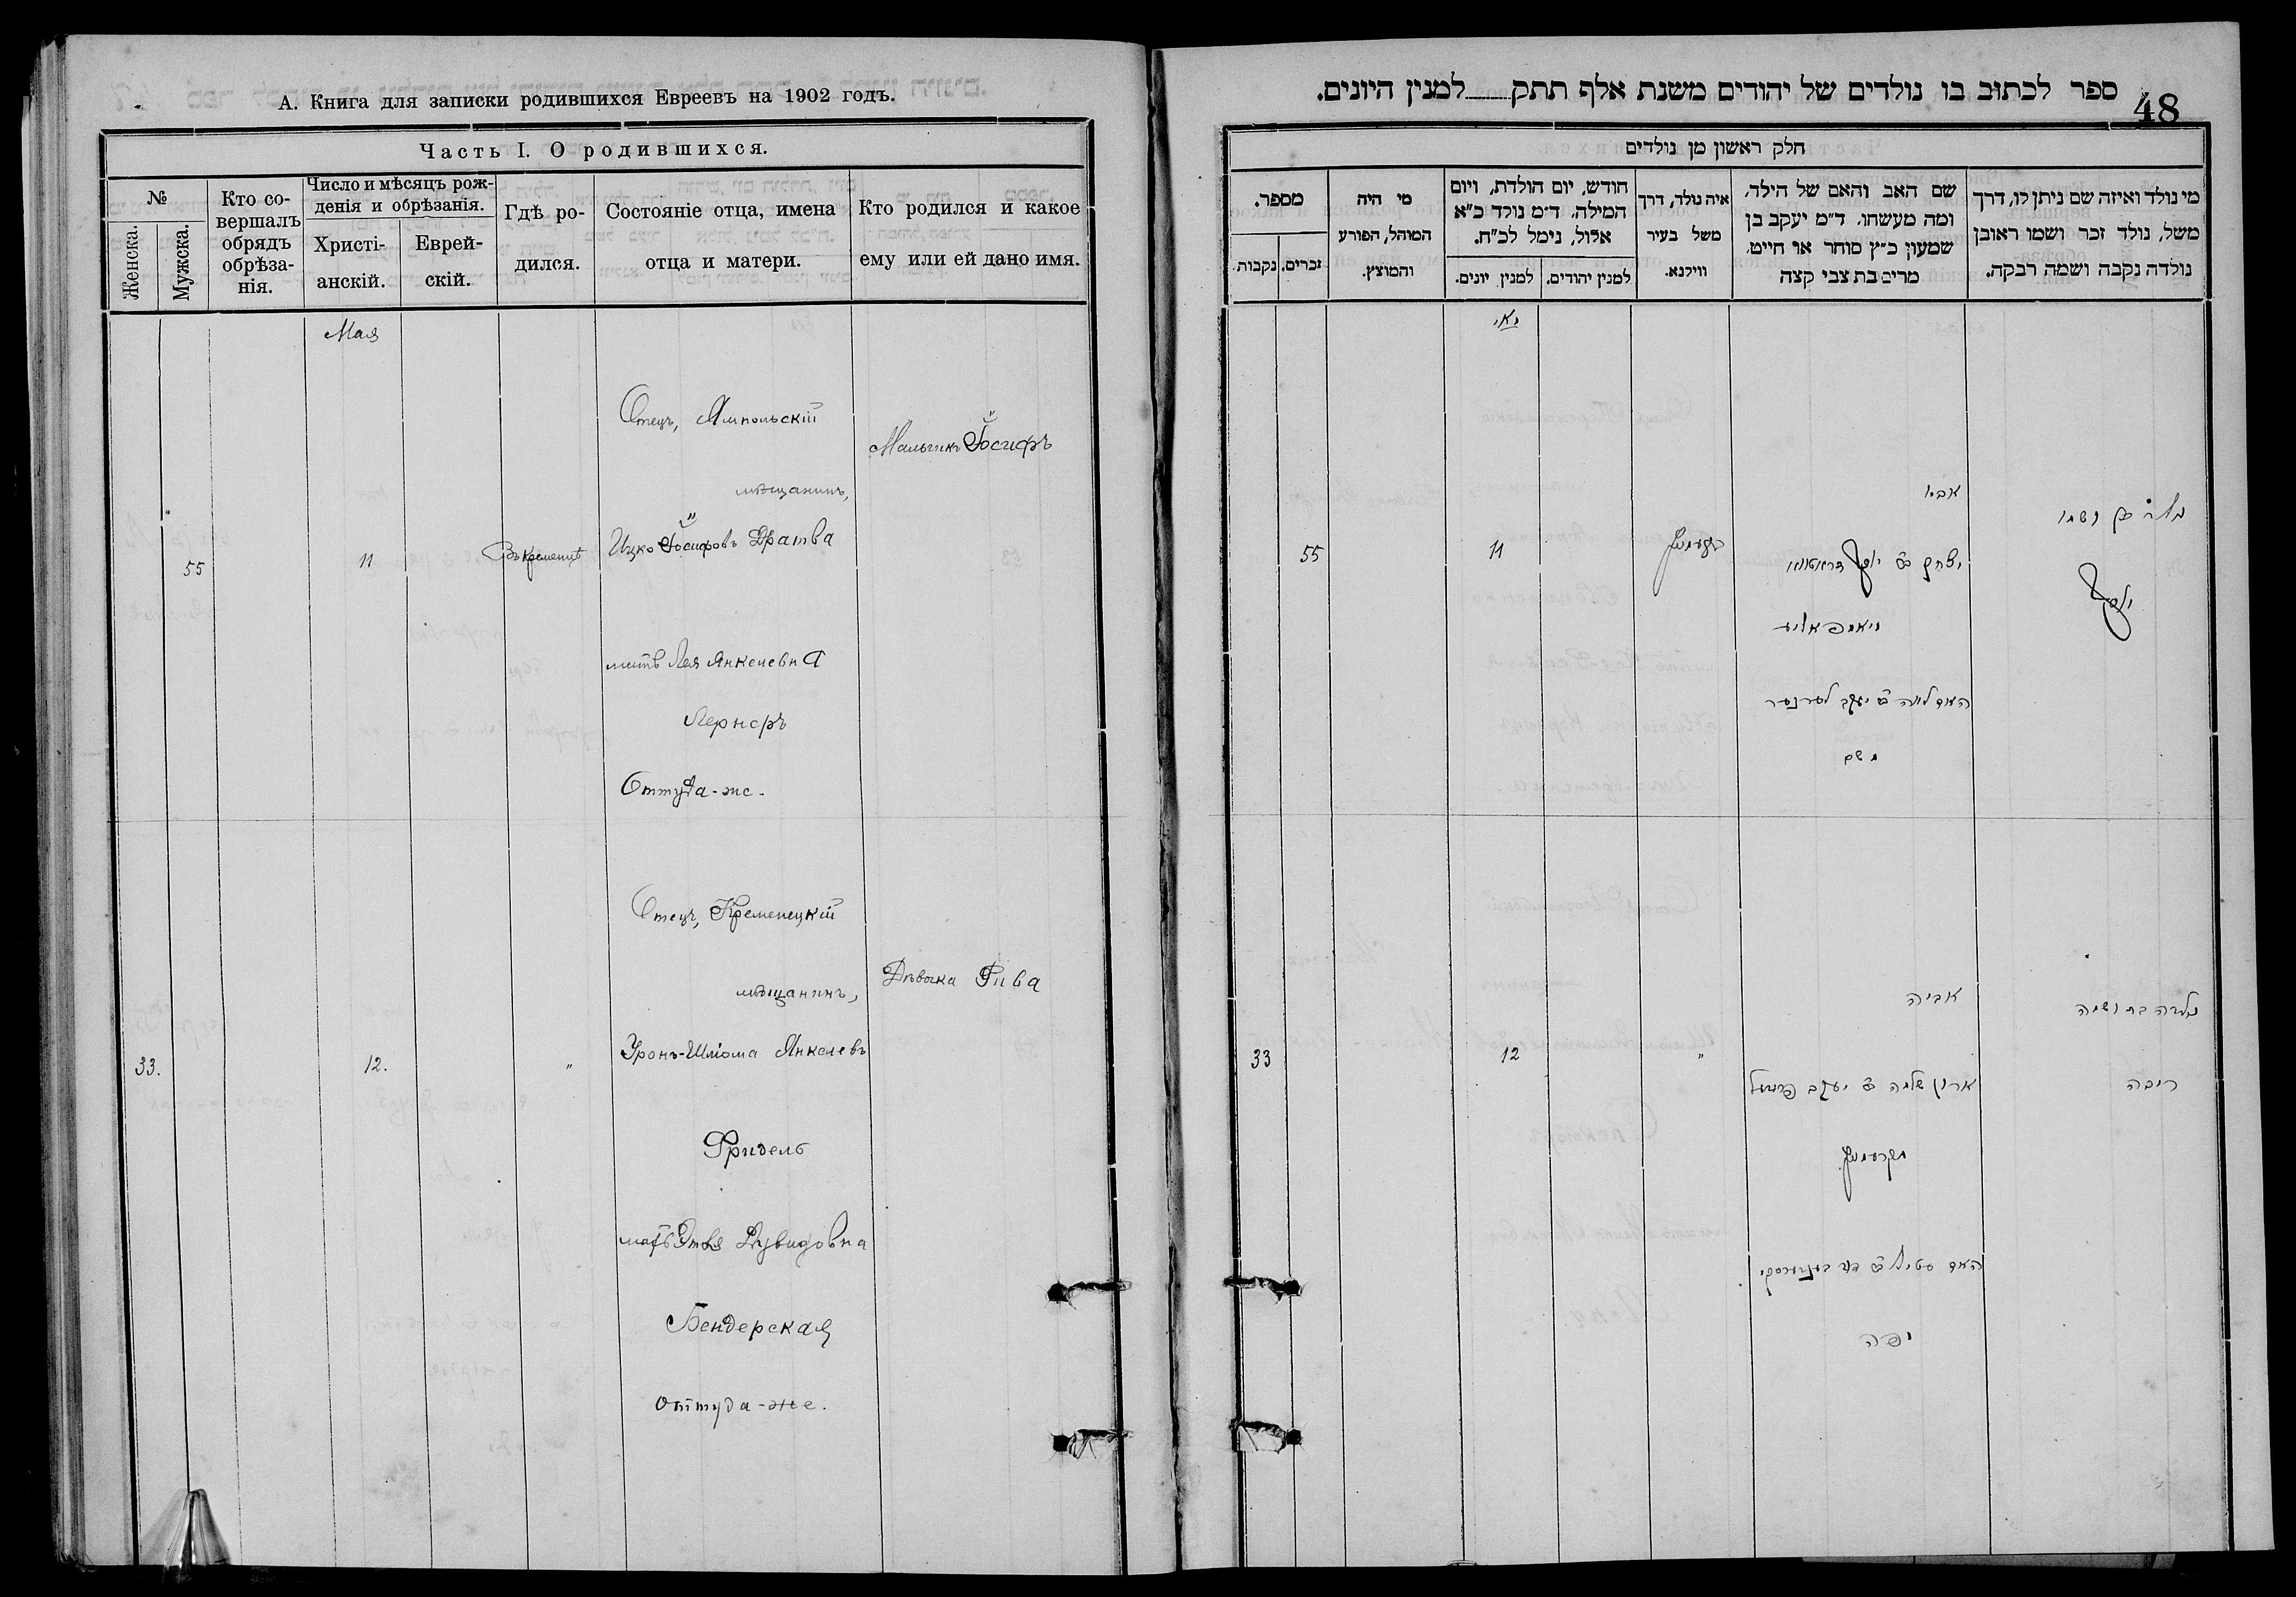 А. Книга для записки родившихся Евреевъ на 1902 годъ.
Часть I. О родившихся.
№
Женска.
Мужска.
Кто со-
вершалъ
обрядъ
обрѣза-
нія.
Число и мѣсяцъ рож-
денія и обрѣзанія.
Христі-
анскій.
Еврей-
скій.
Гдѣ ро-
дился.
Состояніе отца, имена
отца и матери.
Кто родился и какое
ему или ей дано имя.
Мая
Отецъ, Ямпольскій
мѣщанинъ,
Мальчикъ Іосифъ
55
11
Въ Кременцѣ
Ицко Іосифовъ Дратва
мать Лея Янкелевна
Лернеръ
Оттуда-же.
Отецъ, Кременецкій
мѣщанинъ,
Дѣвочка Рива
33.
12.
"
Уронъ-Шлiома Янкелевъ
Фридель
мать Этля Дувидовна
Бендерская
оттуда-же.
48
ספר לכתוב בו נולדים של יהודים משנת אלף תתק למנין היונים.
חלק ראשון מן נולדים
מי נולד ואיזה שם ניתן לו, דרך
משל, נולד זכר ושמו ראובן
נולדה נקבה ושמה רבקה.
שם האב והאם של הילד,
ומה מעשהו. ד"מ יעקב בן
שמעון כ"ץ סוחר או חייט.
מרים בת צבי קצה
איה נולד, דרך
משל בעיר
ווילנא.
חודש, יום הולדת, ויום
המילה. ד"מ נולד כ"א
אלול, נימל לכ"ח.
למנין יהודים.
למנין יונים.
מי היה
המוהל, הפורע
והמוצץ.
מספר.
זכרים.
נקבות.
מאי
אביו
נולד בן ושמו
55
11
יצחק ב"ר יוסף דראטווא
יוסף
האם לאה ב"ר יעקב לערנער
משם
אביה
נולדה בת ושמה
33
12
"
ארון שלמה ב"ר יעקב פרידעל
ריבה